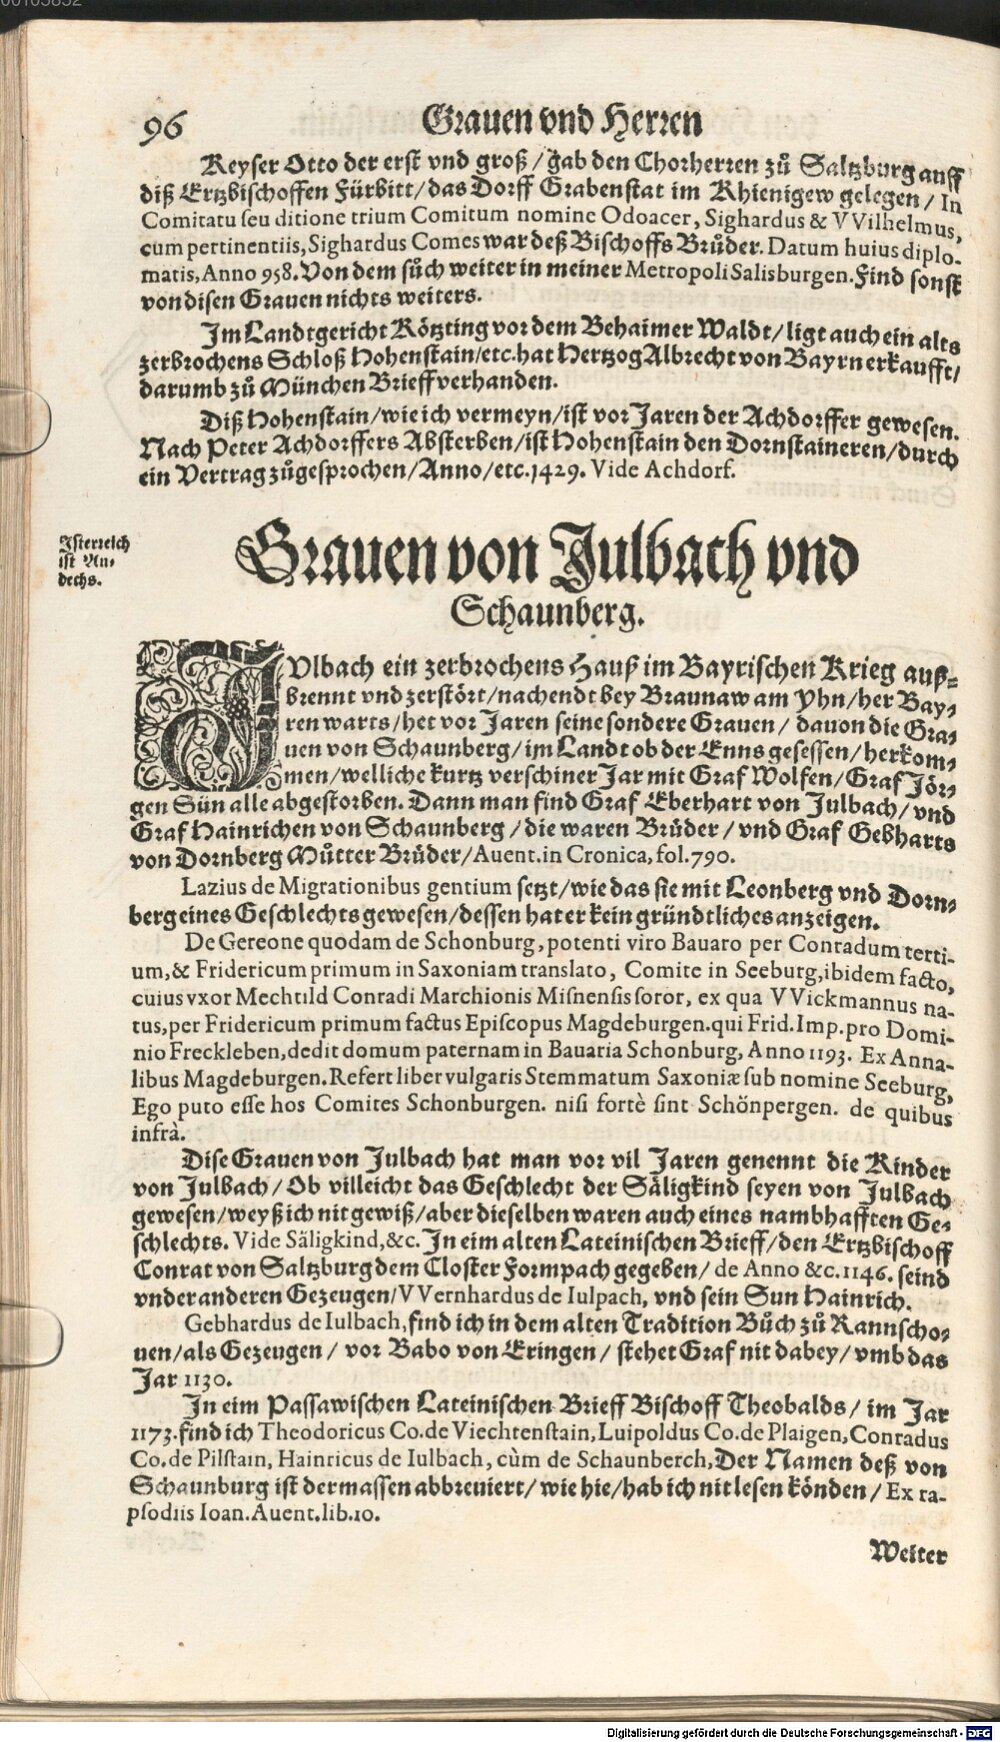 96
Grauen vnd Herren
Keyser Otto der erst vnd groß / gab den Chorherren zů Saltzburg auff
diß Ertzbischoffen Fürbitt / das Dorff Grabenstat im Khienigew gelegen / In
Comitatu seu ditione trium Comitum nomine Odoacer, Sighardus & VVilhelmus,
cum pertinentiis, Sighardus Comes war deß Bischoffs Brůder. Datum huius diplo-
matis, Anno 958. Von dem sůch weiter in meiner Metropoli Salisburgen. Find sonst
von disen Grauen nichts weiters.
Im Landtgericht Kötzting vor dem Behaimer Waldt / ligt auch ein alts
zerbrochens Schloß Hohenstain / etc. hat Hertzog Albrecht von Bayrn erkaufft /
darumb zů München Brieff verhanden.
Diß Hohenstain / wie ich vermeyn / ist vor Jaren der Achdorffer gewesen.
Nach Peter Achdorffers Absterben / ist Hohenstain den Dornstaineren / durch
ein Vertrag zůgesprochen / Anno / etc. 1429. Vide Achdorf.
Isterreich
ist An-
dechs.
Grauen von Julbach vnd
Schaunberg.
JVlbach ein zerbrochens Hauß im Bayrischen Krieg auß-
brennt vnd zerstört / nachendt bey Braunaw am Yhn / her Bay-
ren warts / het vor Jaren seine sondere Grauen / dauon die Gra-
uen von Schaunberg / im Landt ob der Enns gesessen / herkom-
men / welliche kurtz verschiner Jar mit Graf Wolfen / Graf Jör-
gen Sün alle abgestorben. Dann man find Graf Eberhart von Julbach / vnd
Graf Hainrichen von Schaunberg / die waren Brůder / vnd Graf Gebharts
von Dornberg Můtter Brůder / Auent. in Cronica, fol. 790.
Lazius de Migrationibus gentium setzt / wie das sie mit Leonberg vnd Dorn-
berg eines Geschlechts gewesen / dessen hat er kein gründtliches anzeigen.
De Gereone quodam de Schonburg, potenti viro Bauaro per Conradum terti-
um, & Fridericum primum in Saxoniam translato, Comite in Seeburg, ibidem facto,
cuius vxor Mechtild Conradi Marchionis Misnensis soror, ex qua VVickmannus na-
tus, per Fridericum primum factus Episcopus Magdeburgen. qui Frid. Imp. pro Domi-
nio Freckleben, dedit domum paternam in Bauaria Schonburg, Anno 1193. Ex Anna-
libus Magdeburgen. Refert liber vulgaris Stemmatum Saxoniæ sub nomine Seeburg,
Ego puto esse hos Comites Schonburgen. nisi fortè sint Schönpergen. de quibus
infrà.
Dise Grauen von Julbach hat man vor vil Jaren genennt die Kinder
von Julbach / Ob villeicht das Geschlecht der Säligkind seyen von Julbach
gewesen / weyß ich nit gewiß / aber dieselben waren auch eines nambhafften Ge-
schlechts. Vide Säligkind, &c. In eim alten Lateinischen Brieff / den Ertzbischoff
Conrat von Saltzburg dem Closter Formpach gegeben / de Anno &c. 1146. seind
vnder anderen Gezeugen / VVernhardus de Iulpach, vnd sein Sun Hainrich.
Gebhardus de Iulbach, find ich in dem alten Tradition Bůch zů Rannscho-
uen / als Gezeugen / vor Babo von Eringen / stehet Graf nit dabey / vmb das
Jar 1130.
In eim Passawischen Lateinischen Brieff Bischoff Theobalds / im Jar
1173. find ich Theodoricus Co. de Viechtenstain, Luipoldus Co. de Plaigen, Conradus
Co. de Pilstain, Hainricus de Iulbach, cùm de Schaunberch, Der Namen deß von
Schaunburg ist dermassen abbreuiert / wie hie / hab ich nit lesen könden / Ex ra-
psodiis Ioan. Auent. lib. 10.
Weiter
Digitalisierung gefördert durch die Deutsche Forschungsgemeinschaft - DFG